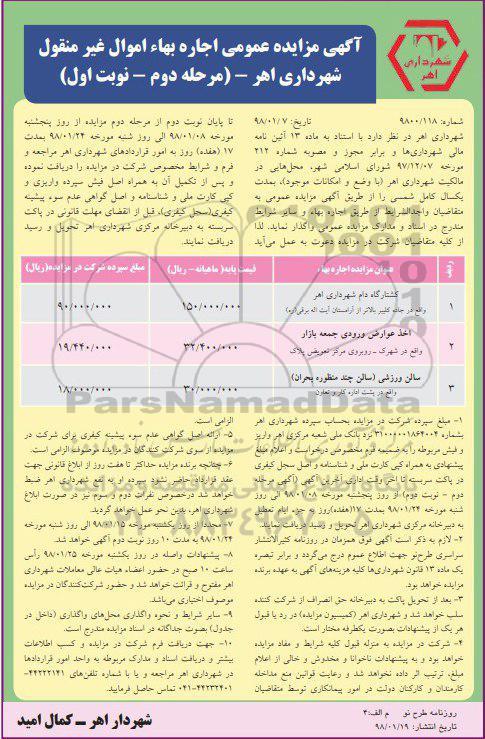 شهرداری
اهر
آگهی مزایده عمومی اجاره بهاء اموال غیر منقول
شهرداری اهر – (مرحله دوم – نوبت اول)
شماره: ۹۸۰۰/۱۱۸
تاریخ: ۹۸/۰۱/۰۷
شهرداری اهر در نظر دارد با استناد به ماده ۱۳ آئین نامه
مالی شهرداری‌ها و برابر مجوز و مصوبه شماره ۲۱۲
مورخه ۹۷/۱۲/۰۷ شورای اسلامی شهر، محل‌هایی در
مالکیت شهرداری اهر (با وضع و امکانات موجود)، بمدت
یکسال کامل شمسی را از طریق آگهی مزایده عمومی به
متقاضیان واجدالشرایط از طریق اجاره بهاء و سایر شرایط
مندرج در اسناد و مدارک مزایده عمومی واگذار نماید. لذا
از کلیه متقاضیان شرکت در مزایده دعوت به عمل می‌آید
تا پایان نوبت دوم از مرحله دوم مزایده از روز پنجشنبه
مورخه ۹۸/۰۱/۰۸ الی روز شنبه مورخه ۹۸/۰۱/۲۴ بمدت
۱۷ (هفده) روز به امور قراردادهای شهرداری اهر مراجعه و
فرم و شرایط مخصوص شرکت در مزایده را دریافت نموده
و پس از تکمیل آن به همراه اصل فیش سپرده واریزی و
کپی کارت ملی و شناسنامه و اصل گواهی عدم سوء پیشینه
کیفری(سجل کیفری)، قبل از انقضای مهلت قانونی در پاکت
سربسته به دبیرخانه مرکزی شهرداری اهر تحویل و رسید
دریافت نمایند.
ردیف عنوان مزایده اجاره بهاء قیمت پایه( ماهیانه- ریال) مبلغ سپرده شرکت در مزایده(ریال)
۱ کشتارگاه دام شهرداری اهر ۱۵۰/۰۰۰/۰۰۰ ۹۰/۰۰۰/۰۰۰
واقع در جاده کلیبر بالاتر از آرامستان آیت اله برقی(ره)
۲ اخذ عوارض ورودی جمعه بازار ۳۲/۴۰۰/۰۰۰ ۱۹/۴۴۰/۰۰۰
واقع در شهرک ـ روبروی مرکز تعویض پلاک
۳ سالن ورزشی (سالن چند منظوره بحران) ۳۰/۰۰۰/۰۰۰ ۱۸/۰۰۰/۰۰۰
واقع در پشت اداره کار و تعاون
ParsNamadData
۱- مبلغ سپرده شرکت در مزایده بحساب سپرده شهرداری اهر
بشماره ۳۱۰۰۰۰۱۸۶۴۰۰۴ نزد بانک ملی شعبه مرکزی اهر واریز
و فیش مربوطه را به ضمیمه فرم مخصوص درخواست و اعلام مبلغ
پیشنهادی به همراه کپی کارت ملی و شناسنامه و اصل سجل کیفری
در پاکت سربسته تا آخر وقت اداری آخرین آگهی (آگهی مرحله
دوم - نوبت دوم) از روز پنجشنبه مورخه ۹۸/۰۱/۰۸ الی روز
شنبه مورخه ۹۸/۰۱/۲۴ بمدت ۱۷(هفده)روز به جزء ایام تعطیل
به دبیرخانه مرکزی شهرداری اهر تحویل و رسید دریافت نمایند.
۲- لازم به ذکر است آگهی فوق همزمان در روزنامه کثیرالانتشار
سراسری طرح‌نو جهت اطلاع عموم درج می‌گردد و برابر تبصره
یک ماده ۱۳ قانون شهرداری‌ها کلیه هزینه‌های آگهی به عهده برنده
مزایده خواهد بود.
۳- بعد از تحویل پاکت به دبیرخانه حق انصراف از شرکت کننده
سلب خواهد شد و شهرداری اهر (کمیسیون مزایده) در رد یا قبول
هر یک از پیشنهادات بصورت یکطرفه مختار است.
۴- شرکت در مزایده به منزله قبول کلیه شرایط و مفاد مزایده
خواهد بود و به پیشنهادات ناخوانا و مخدوش و خالی از اعلام
مبلغ، ترتیب اثر داده نخواهد شد و رعایت قوانین منع مداخله
کارمندان و کارکنان دولت در امور پیمانکاری توسط متقاضیان
الزامی است.
۵- ارائه اصل گواهی عدم سوء پیشینه کیفری برای شرکت در
مزایده از سوی شرکت کنندگان در مزایده موضوعه الزامی است.
۶- چنانچه برنده مزایده حداکثر تا هفت روز از ابلاغ قانونی جهت
عقد قرارداد حاضر نشود سپرده او به نفع شهرداری اهر ضبط
خواهد شد درخصوص نفرات دوم و سوم نیز در صورت ابلاغ
شهرداری اهر، بدین نحو عمل خواهد گردید.
۷- مجددا از روز یکشنبه مورخه ۹۸/۰۱/۱۵ الی روز شنبه مورخه
۹۸/۰۱/۲۴ به مدت ۱۰ روز نوبت دوم آگهی خواهد شد.
۸- پیشنهادات واصله در روز یکشنبه مورخه ۹۸/۰۱/۲۵ رأس
ساعت ۱۰ صبح در حضور اعضاء هیات عالی معاملات شهرداری
اهر مفتوح و قرائت خواهد شد و حضور شرکت‌کنندگان در مزایده
موصوف اختیاری می‌باشد.
۹- سایر شرایط و نحوه واگذاری محل‌های واگذاری (داخل در
جدول) بصوت جداگانه در اسناد مزایده مندرج است.
۱۰- جهت دریافت فرم شرکت در مزایده و کسب اطلاعات
بیشتر و دریافت اسناد و مدارک مربوطه به واحد امور قراردادها
در شهرداری اهر مراجعه و یا با شماره تلفن‌های ۴۴۲۲۲۱۴۱-
۰۴۱-۴۴۲۳۲۴۰۱ تماس حاصل فرمایید.
روزنامه طرح نو م الف:۴
تاریخ انتشار: ۹۸/۰۱/۱۹
شهردار اهر ــ کمال امید